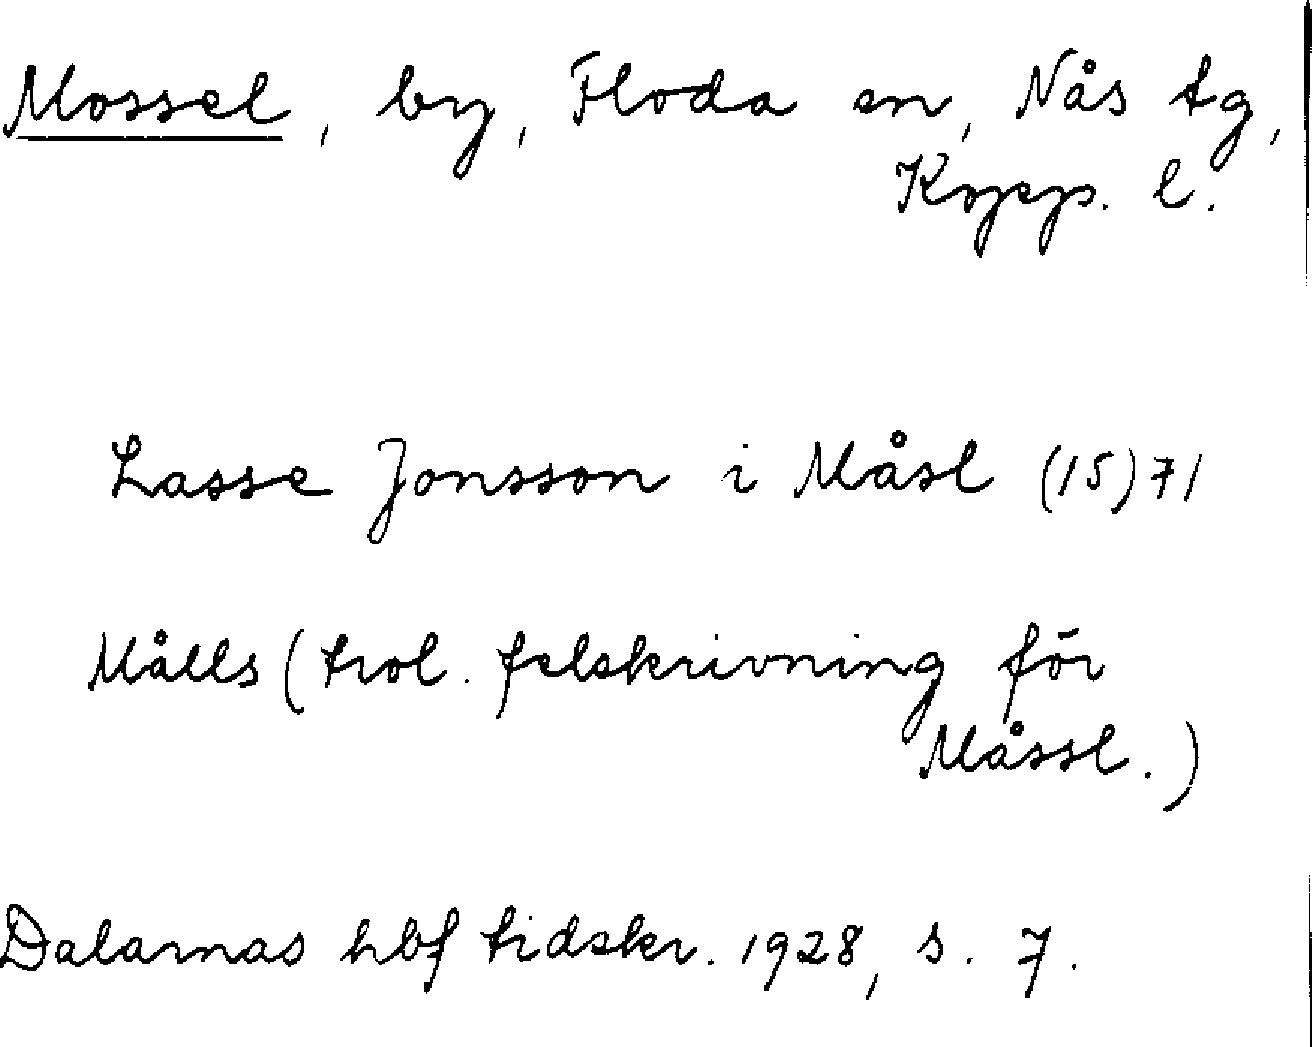 Mossel, by, Floda sn, Nås tg,
Kopp. l.
Lasse Jonsson i Måsl (15)71
Målls (trol. felskrivning för
Måssl.)
Dalarnas hbf tidskr. 1928, s. 7.